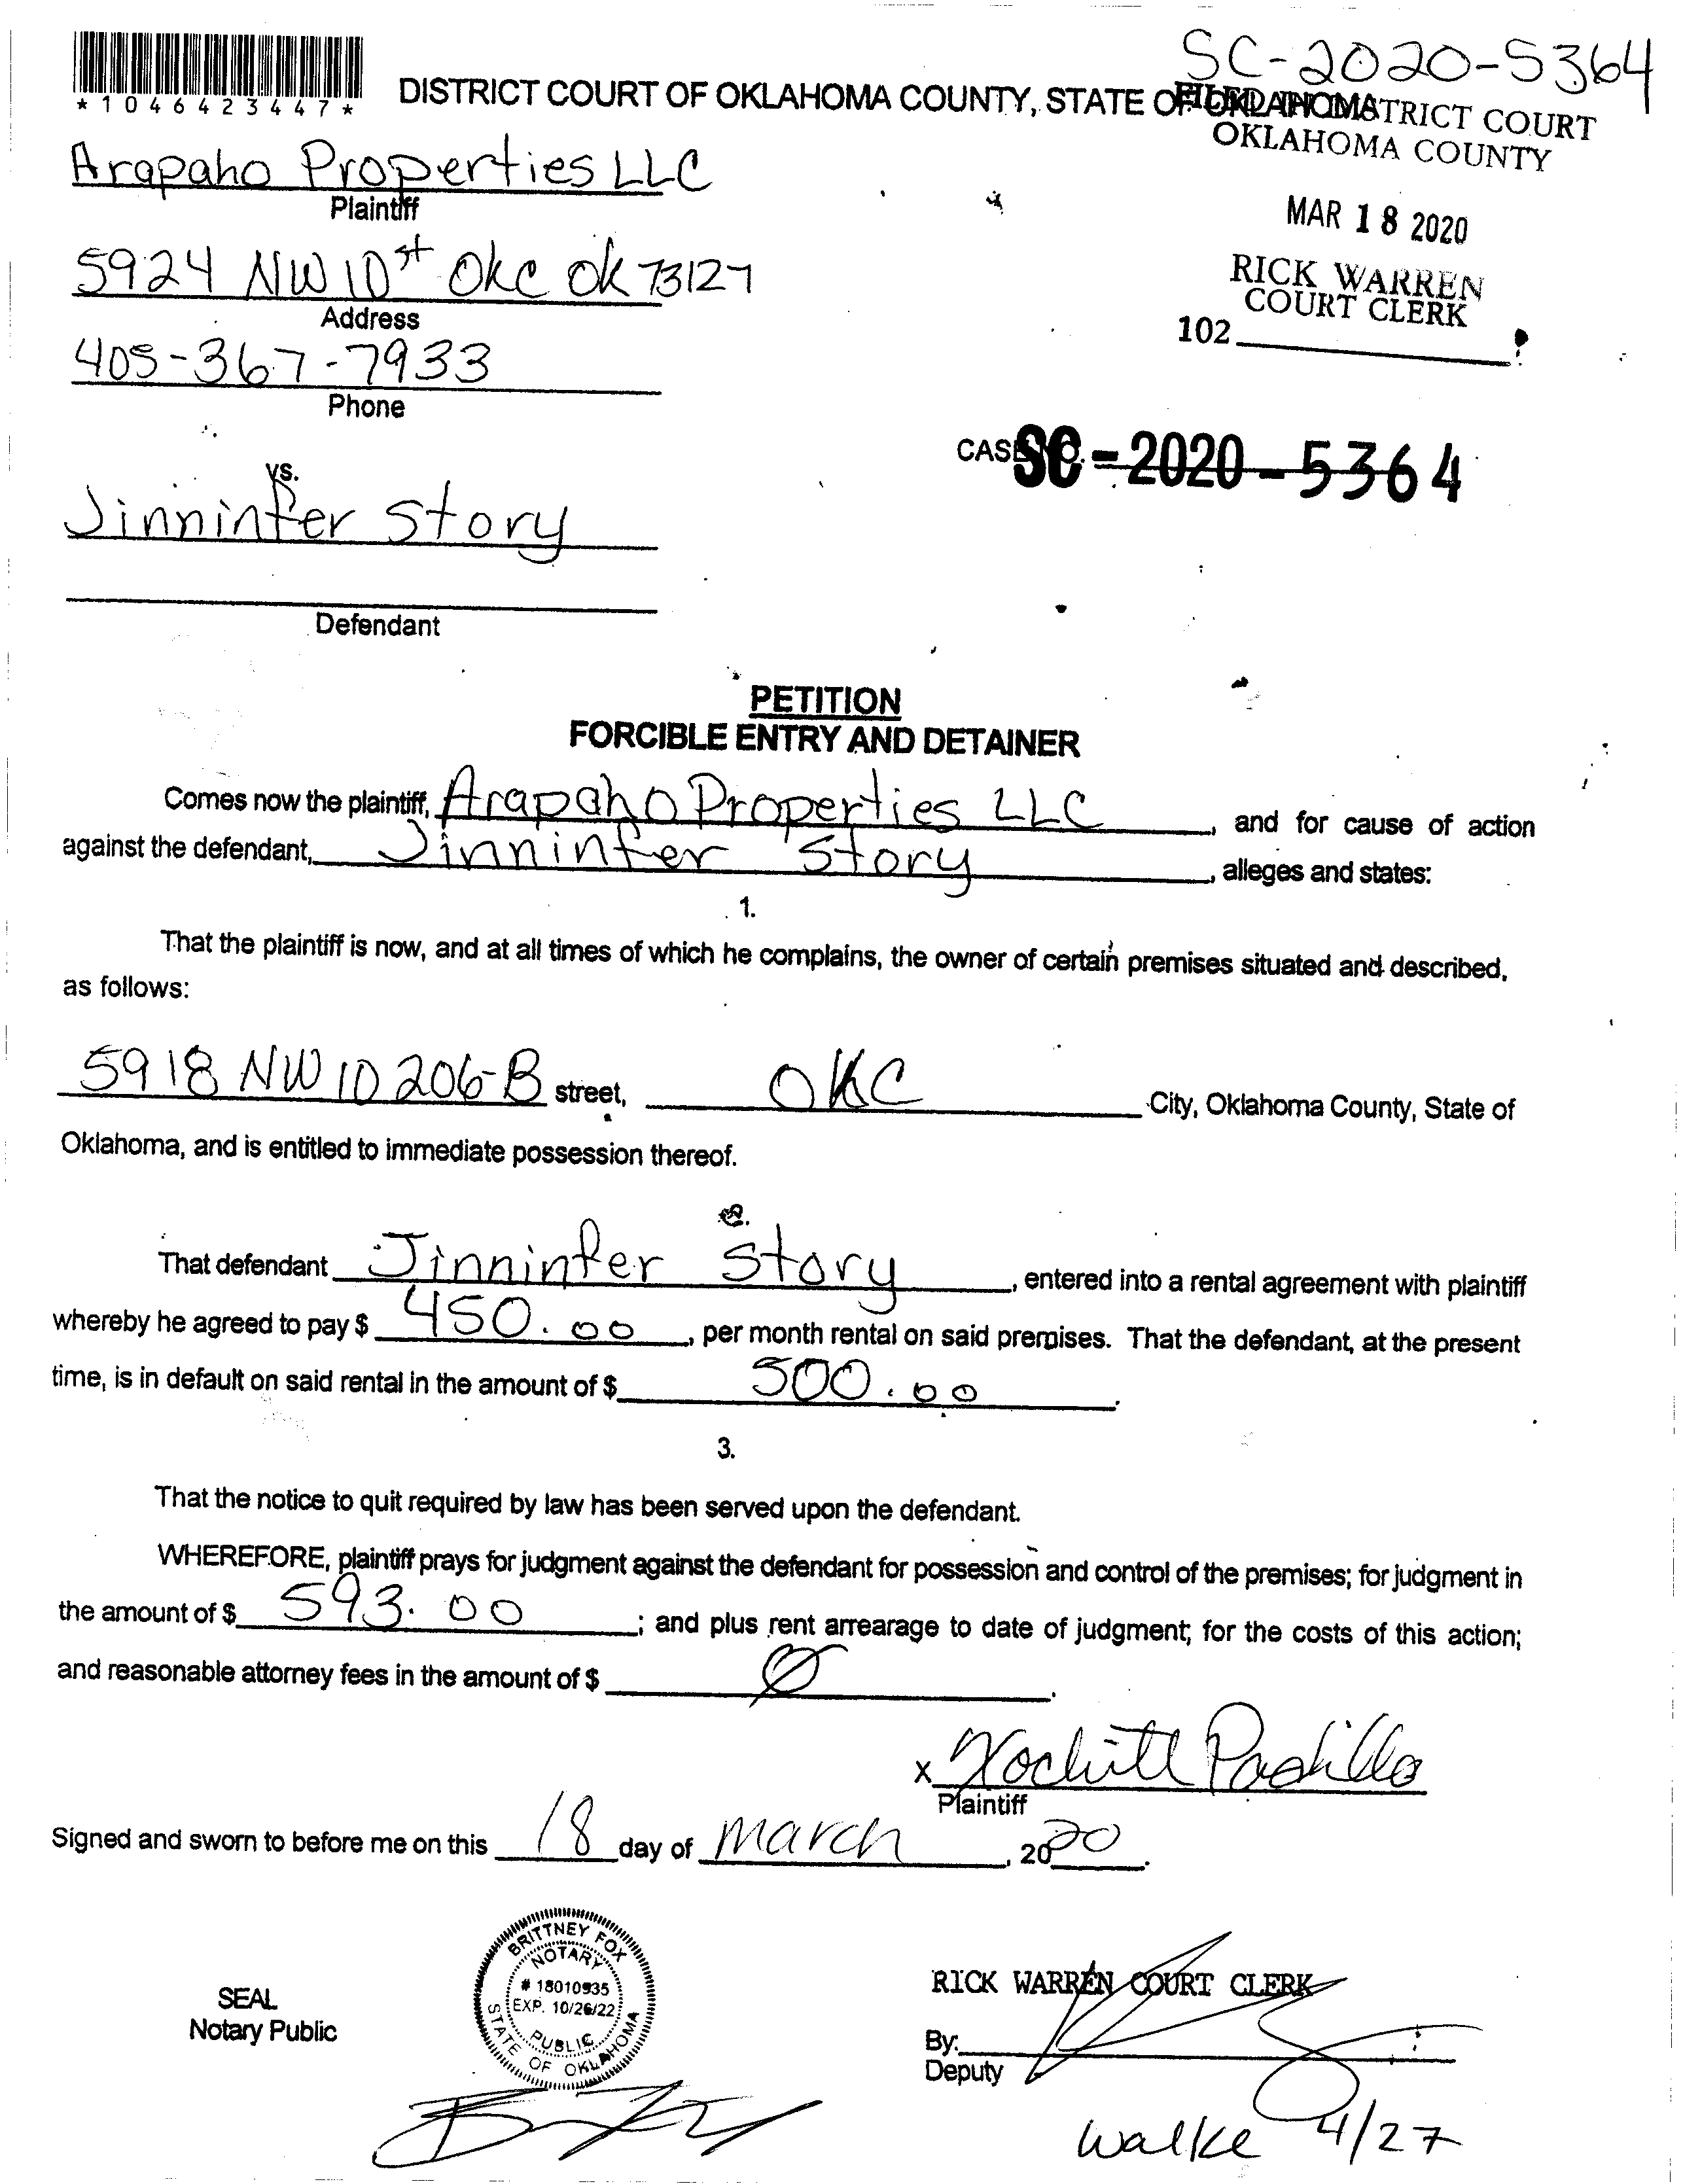 SC-2020-5364
*1046423447*
DISTRICT COURT OF OKLAHOMA COUNTY, STATE OF OKLAHOMA
FILED IN DISTRICT COURT
OKLAHOMA COUNTY
Arapaho Properties LLC
Plaintiff
MAR 18 2020
5924 NW 10st OKC OK 73127
Address
RICK WARREN
COURT CLERK
102
405-367-7933
Phone
CASE NO. SC-2020-5364
vs.
Jinninfer Story
Defendant
PETITION
FORCIBLE ENTRY AND DETAINER
Comes now the plaintiff, Arapaho Properties LLC, and for cause of action
against the defendant, Jinninfer Story, alleges and states:
1.
That the plaintiff is now, and at all times of which he complains, the owner of certain premises situated and described,
as follows:
5918 NW 10 206-B street, OKC City, Oklahoma County, State of
Oklahoma, and is entitled to immediate possession thereof.
2.
That defendant Jinninfer Story, entered into a rental agreement with plaintiff
whereby he agreed to pay $ 450.00, per month rental on said premises. That the defendant, at the present
time, is in default on said rental in the amount of $ 500.00.
3.
That the notice to quit required by law has been served upon the defendant.
WHEREFORE, plaintiff prays for judgment against the defendant for possession and control of the premises; for judgment in
the amount of $ 593.00; and plus rent arrearage to date of judgment; for the costs of this action;
and reasonable attorney fees in the amount of $ Ø.
x Xochitl Padilla
Plaintiff
Signed and sworn to before me on this 18 day of March, 2020.
BRITTNEY FOX
NOTARY
# 18010935
EXP. 10/26/22
PUBLIC
STATE OF OKLAHOMA
SEAL
Notary Public
RICK WARREN COURT CLERK
By:
Deputy
Walke 4/27